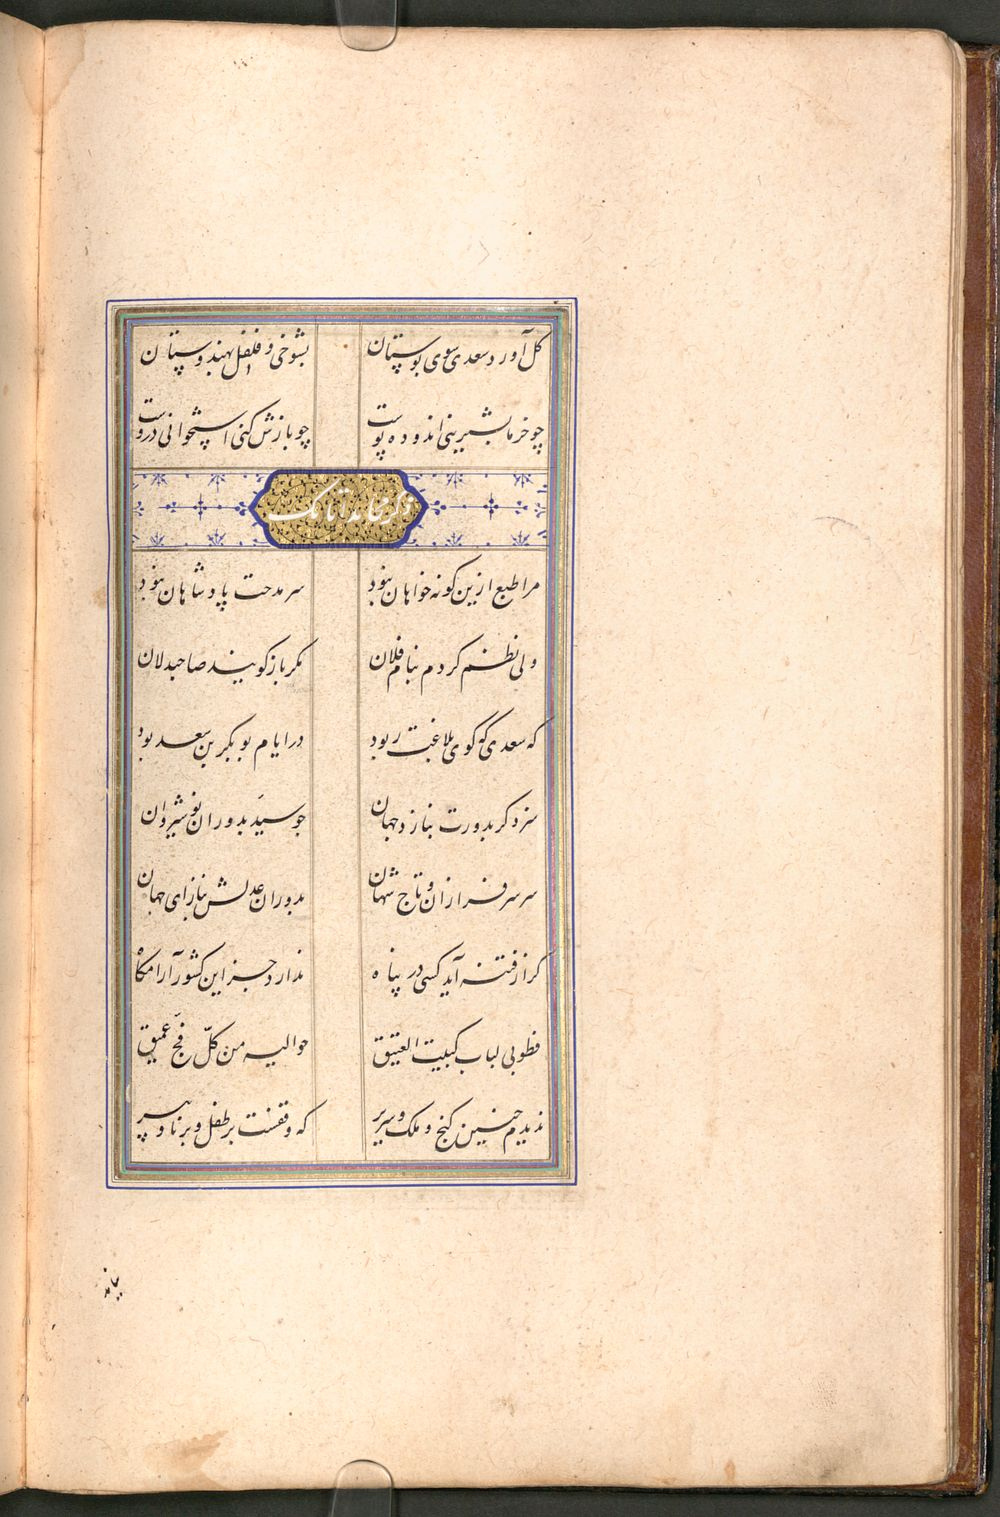 گل آورد سعدی سوی بوستان بشوخی و فلفل بهندوستان
چو خرما بشیرینی اندوده پوست چو بازش کنی استخوانی دروست
ذکر محامد اتابک
مرا طبع ازین کونه خواهان نبود سر مدحت پادشاهان نبود
ولی نظم کردم بنام فلان مکر باز کویند صاحبدلان
که سعدی که کوی بلاغت ربود در ایام بو بکر بن سعد بود
سزد کر بدورت بنازد جهان جو سید بدوران نوشیروان
سر سرفرازان و تاج شهان بدوران عدلش بناز ای جهان
کر از فتنه آید کسی در پناه ندارد جز این کشور آرامکاه
فطوبی لباب کبیت العتیق حوالیه من کلّ فجّ عمیق
ندیدم جنین کنج و ملک و سریر که وقفست بر طفل و برنا و پیر